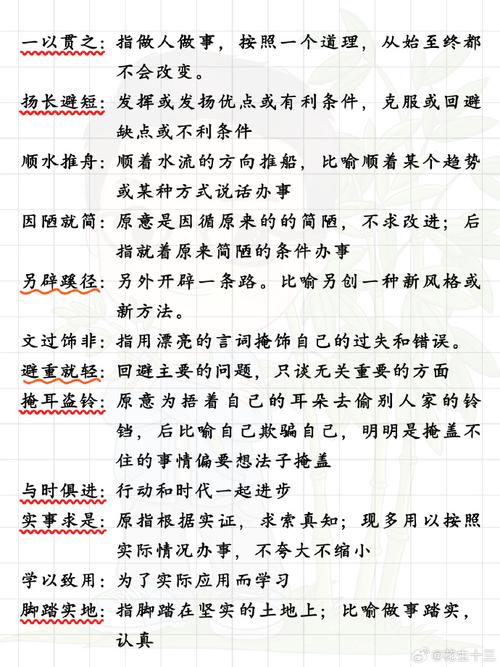 一以贯之：指做人做事，按照一个道理，从始至终都
不会改变。
扬长避短：发挥或发扬优点或有利条件，克服或回避
缺点或不利条件
顺水推舟：顺着水流的方向推船，比喻顺着某个趋势
或某种方式说话办事
因陋就简：原意是因循原来的的简陋，不求改进；后
指就着原来简陋的条件办事
另辟蹊径：另外开辟一条路。比喻另创一种新风格或
新方法。
文过饰非：指用漂亮的言词掩饰自己的过失和错误。
避重就轻：回避主要的问题，只谈无关重要的方面
掩耳盗铃：原意为捂着自己的耳朵去偷别人家的铃
铛，后比喻自己欺骗自己，明明是掩盖不
住的事情偏要想法子掩盖
与时俱进：行动和时代一起进步
实事求是：原指根据实证，求索真知；现多用以按照
实际情况办事，不夸大不缩小
学以致用：为了实际应用而学习
脚踏实地：指脚踏在坚实的土地上；比喻做事踏实，
认真
@花生十三